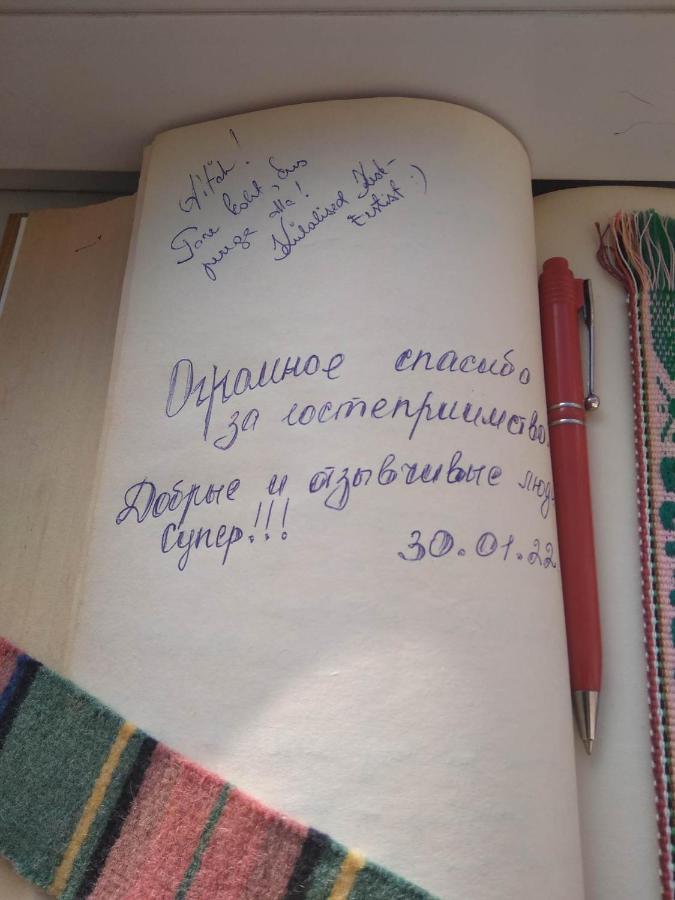 Aitäh!
Tore koht, kus
peuga olla!
Külalised Kesk-
Eestist :)
Огромное спасибо
за гостеприимство.
Добрые и отзывчивые люд
супер!!!
30.01.22